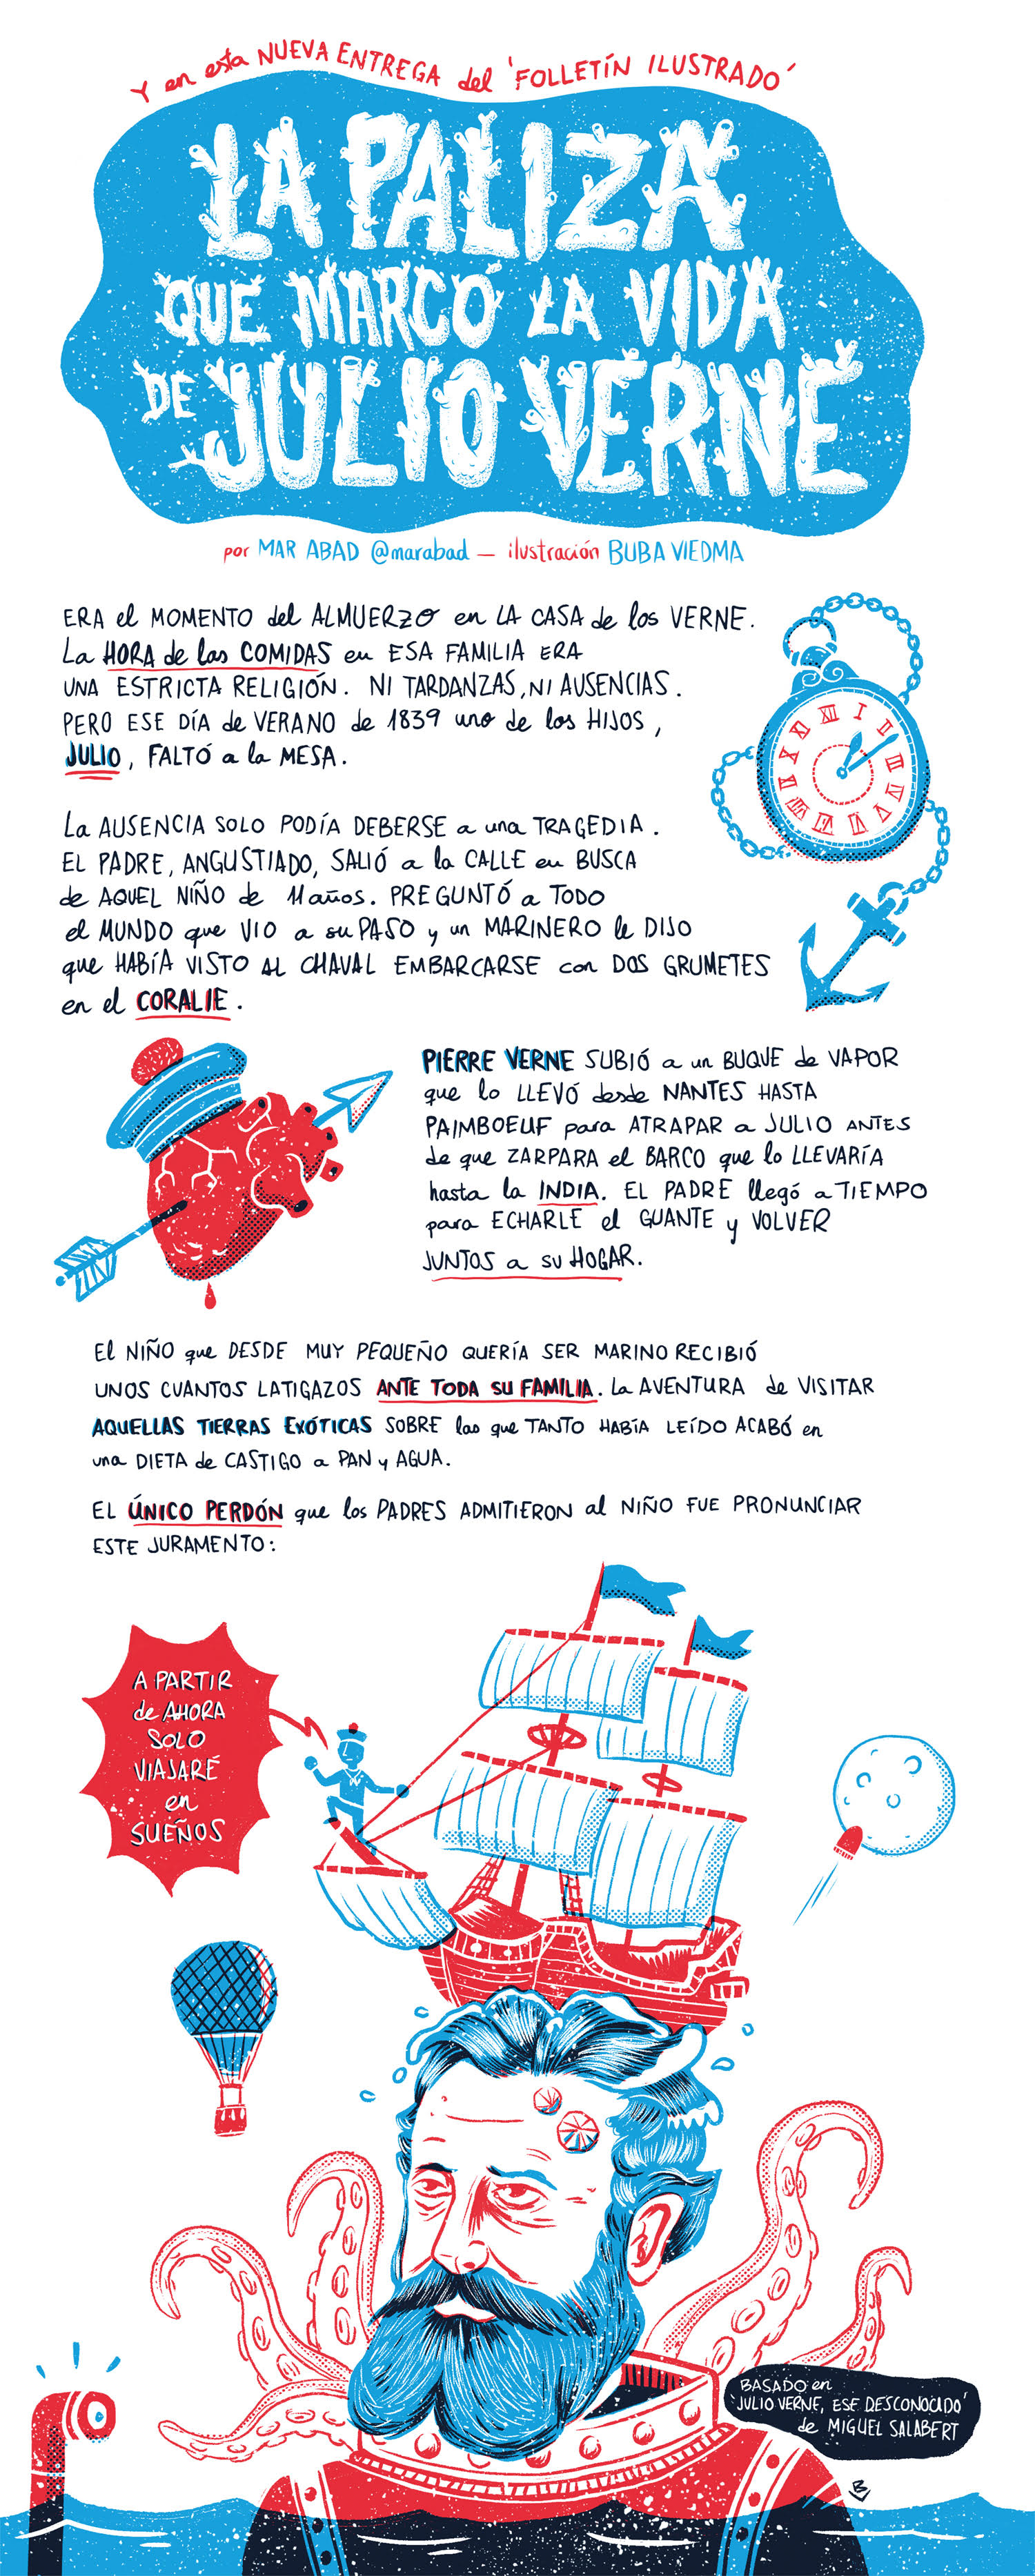 Y en esta NUEVA ENTREGA del 'FOLLETÍN ILUSTRADO'
LA PALIZA
QUE MARCÓ LA VIDA
DE JULIO VERNE
por MAR ABAD @marabad — ilustración BUBA VIEDMA
ERA el MOMENTO del ALMUERZO en LA CASA de los VERNE.
La HORA de las COMIDAS en ESA FAMILIA ERA
UNA ESTRICTA RELIGIÓN. NI TARDANZAS, NI AUSENCIAS.
PERO ESE DÍA de VERANO de 1839 uno de los HIJOS,
JULIO, FALTÓ a la MESA.
La AUSENCIA SOLO PODÍA DEBERSE a una TRAGEDIA.
EL PADRE, ANGUSTIADO, SALIÓ a la CALLE en BUSCA
de AQUEL NIÑO de 11 años. PREGUNTÓ a TODO
el MUNDO que VIO a su PASO y un MARINERO le DIJO
que HABÍA VISTO AL CHAVAL EMBARCARSE con DOS GRUMETES
en el CORALIE.
XII I II III IV V VI VII VIII IX X XI
PIERRE VERNE SUBIÓ a un BUQUE de VAPOR
que lo LLEVÓ desde NANTES HASTA
PAIMBOEUF para ATRAPAR a JULIO ANTES
de que ZARPARA el BARCO que lo LLEVARÍA
hasta la INDIA. EL PADRE llegó a TIEMPO
para ECHARLE el GUANTE y VOLVER
JUNTOS a su HOGAR.
El NIÑO que DESDE MUY PEQUEÑO QUERÍA SER MARINO RECIBIÓ
UNOS CUANTOS LATIGAZOS ANTE TODA SU FAMILIA. La AVENTURA de VISITAR
AQUELLAS TIERRAS EXÓTICAS SOBRE las que TANTO HABÍA LEÍDO ACABÓ en
una DIETA de CASTIGO a PAN y AGUA.
EL ÚNICO PERDÓN que los PADRES ADMITIERON al NIÑO FUE PRONUNCIAR
ESTE JURAMENTO:
A PARTIR
de AHORA
SOLO
VIAJARÉ
en
SUEÑOS
BASADO en
'JULIO VERNE, ESE DESCONOCIDO'
de MIGUEL SALABERT
B